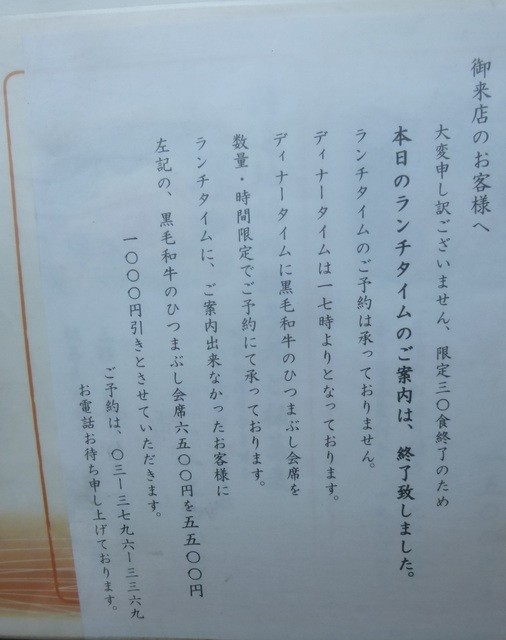 御来店のお客様へ
大変申し訳ございません、限定三〇食終了のため
本日のランチタイムのご案内は、終了致しました。
ランチタイムのご予約は承っておりません。
ディナータイムは一七時よりとなっております。
ディナータイムに黒毛和牛のひつまぶし会席を
数量・時間限定でご予約にて承っております。
ランチタイムに、ご案内出来なかったお客様に
左記の、黒毛和牛のひつまぶし会席六五〇〇円を五五〇〇円
一〇〇〇円引きとさせていただきます。
ご予約は、〇三ー三七九六ー三三六九
お電話お待ち申し上げております。